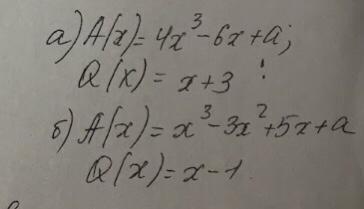 а) A(x)=4x³-6x+a;
Q(x)=x+3
б) A(x)=x³-3x²+5x+a
Q(x)=x-1